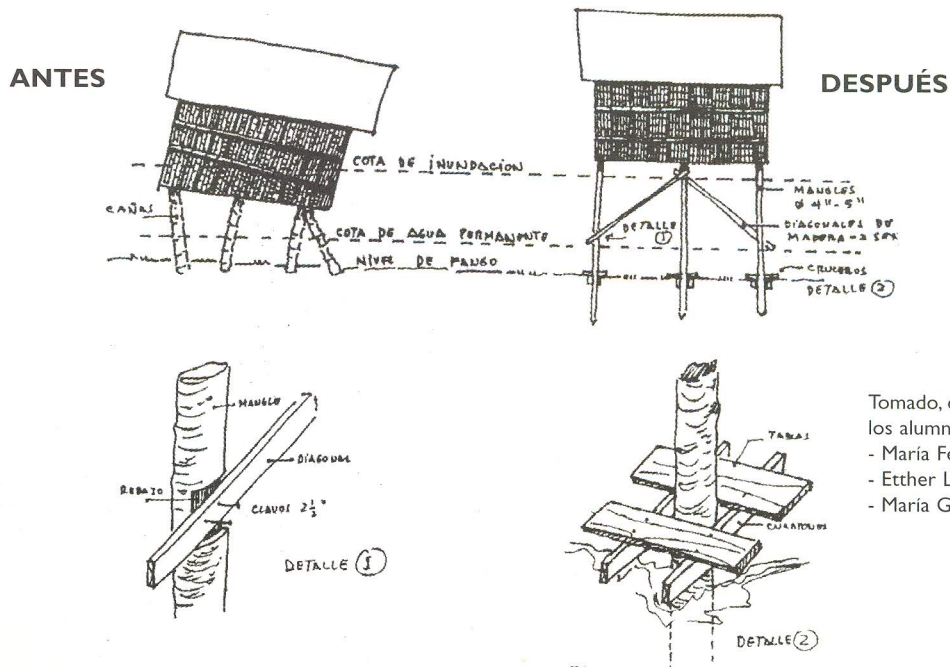 ANTES
DESPUÉS
COTA DE INUNDACION
CAÑAS
COTA DE AGUA PERMANENTE
NIVEL DE FANGO
MANGLES
Ø 4" - 5"
DETALLE
1
DIAGONALES DE
MADERA - 2
CRUCEROS
DETALLE 2
MANGLE
DIAGONAL
REBAJO
CLAVOS 2 ½"
DETALLE 1
TABLAS
CUARTONES
DETALLE 2
Tomado, 
los alumn
- María Fe
- Etther L
- María G